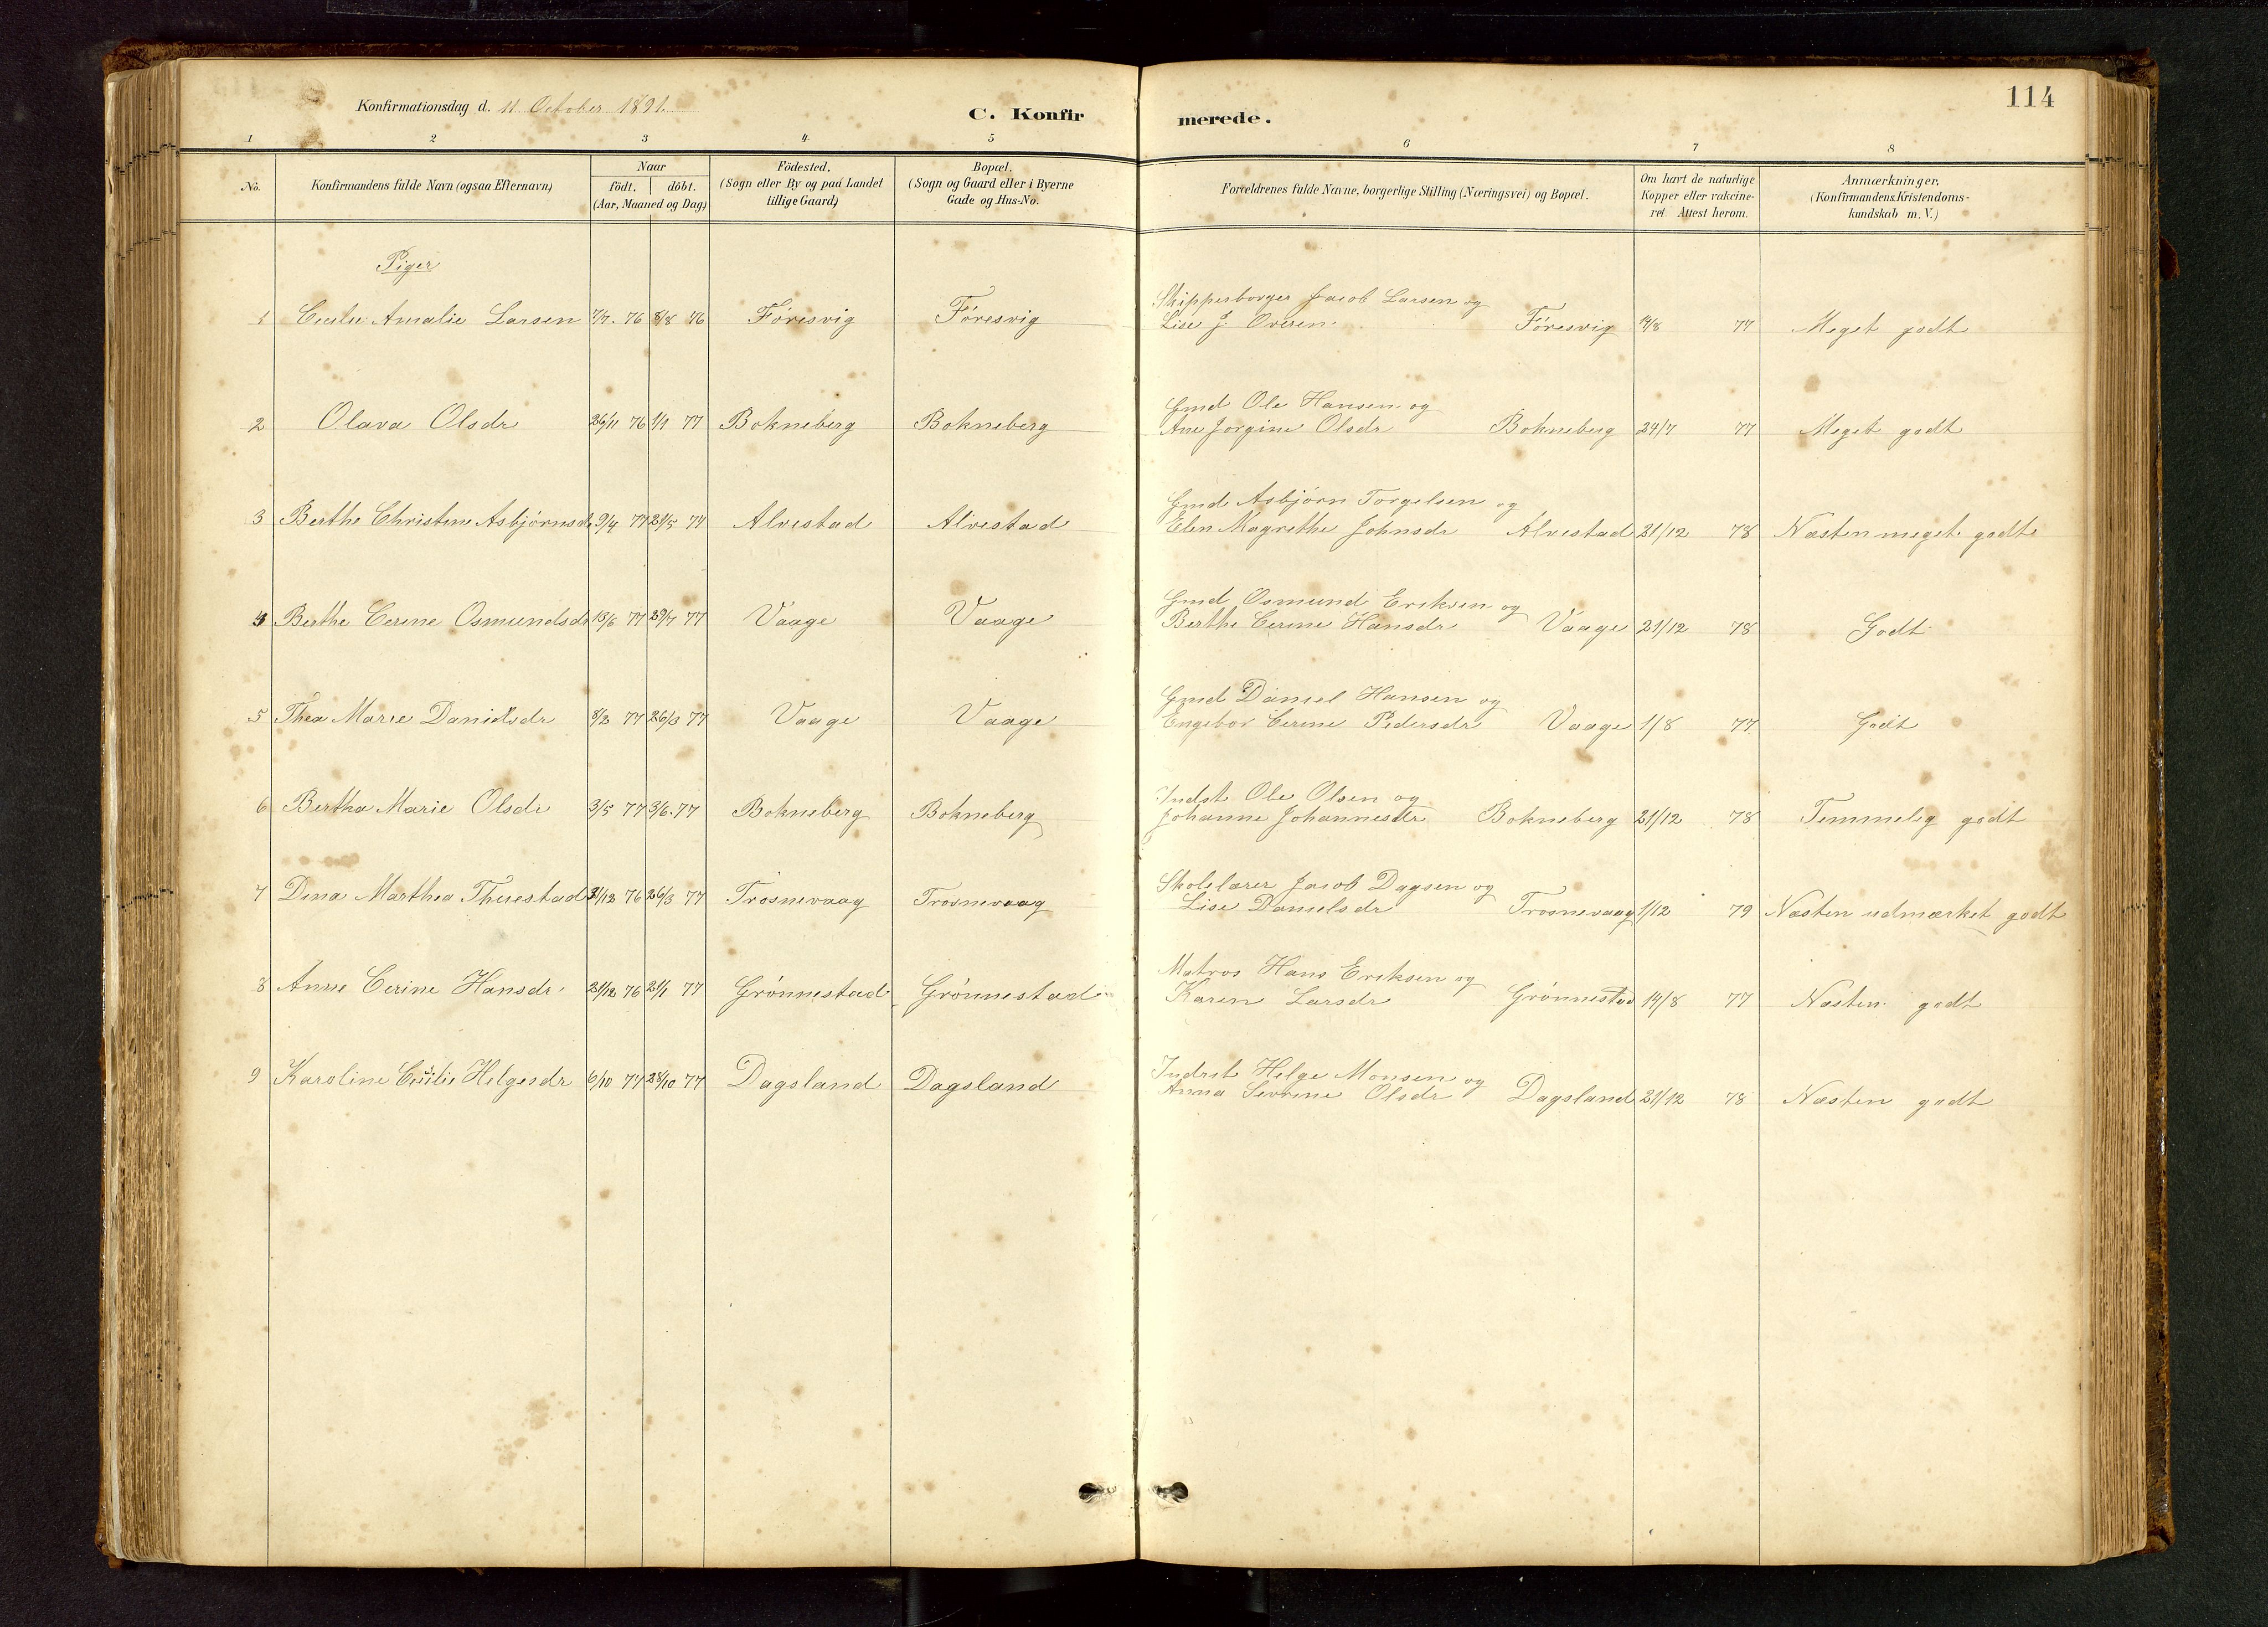 114
Konfirmationsdag d. 11 October 1891.
C. Konfirmerede.
1 2 3 4 5 6 7 8
No.
Konfirmandens fulde Navn (ogsaa Efternavn)
Naar
födt. döbt.
(Aar, Maaned og Dag)
Födested.
(Sogn eller By og paa Landet
tillige Gaard)
Bopæl.
(Sogn og Gaard eller i Byerne
Gade og Hus-No.
Forældrenes fulde Navne, borgerlige Stilling (Næringsvei) og Bopæl.
Om havt de naturlige
Kopper eller vakcine-
ret. Attest herom.
Anmærkninger.
(Konfirmandens Kristendoms-
kundskab m. V.)
Piger
Skipperborger Jacob Larsen og
1 Amalie Larsen 7/7. 76 8/8 76 Föresvig Föresvig Lise J. Föresvig 14/8 77 Meget godt
Gmd Ole Hansen og
2 Olava Olsdr 26/11 76 1/1 77 Bokneberg Bokneberg Ane Jorgine Olsdr Bokneberg 24/7 77 Meget godt
Gmd Asbjörn Torgelsen og
3 Berthe Christine Asbjörnsdr 9/4 77 21/5 77 Alvestad Alvestad Elen Magrethe Johnsdr Alvestad 21/12 78 Næsten meget godt
Gmd Osmund Eriksen og
4 Berthe Cerine Osmundsdr 13/6 77 29/7 77 Vaage Vaage Berthe Cerine Hansdr Vaage 21/12 78 Godt
Gmd Daniel Hansen og
5 Thea Marie Danielsdr 8/2 77 26/3 77 Vaage Vaage Engebor Cerine Pedersdr Vaage 1/8 77 Godt
Indst Ole Olsen og
6 Bertha Marie Olsdr 3/5 77 3/6. 77 Bokneberg Bokneberg Johanne Johannesdr Bokneberg 21/12 78 Temmelig godt
Skolelærer Jacob Dagsen og
7 Dina Marthea Thuestad 31/12 76 26/3 77 Trosnevaag Trosnevaag Lise Danielsdr Trosnevaag 1/12 79 Næsten udmærket godt
Matros Hans Eriksen og
8 Anne Cerine Hansdr 21/12 76 21/1 77 Grönnestad Grönnestad Karen Larsdr Grönnestad 14/8 77 Næsten godt
Indst Helge Monsen og
9 Karoline Cesilie Helgesdr 6/10 77 28/10 77 Dagsland Dagsland Anna Severine Olsdr Dagsland 21/12 78 Næsten godt